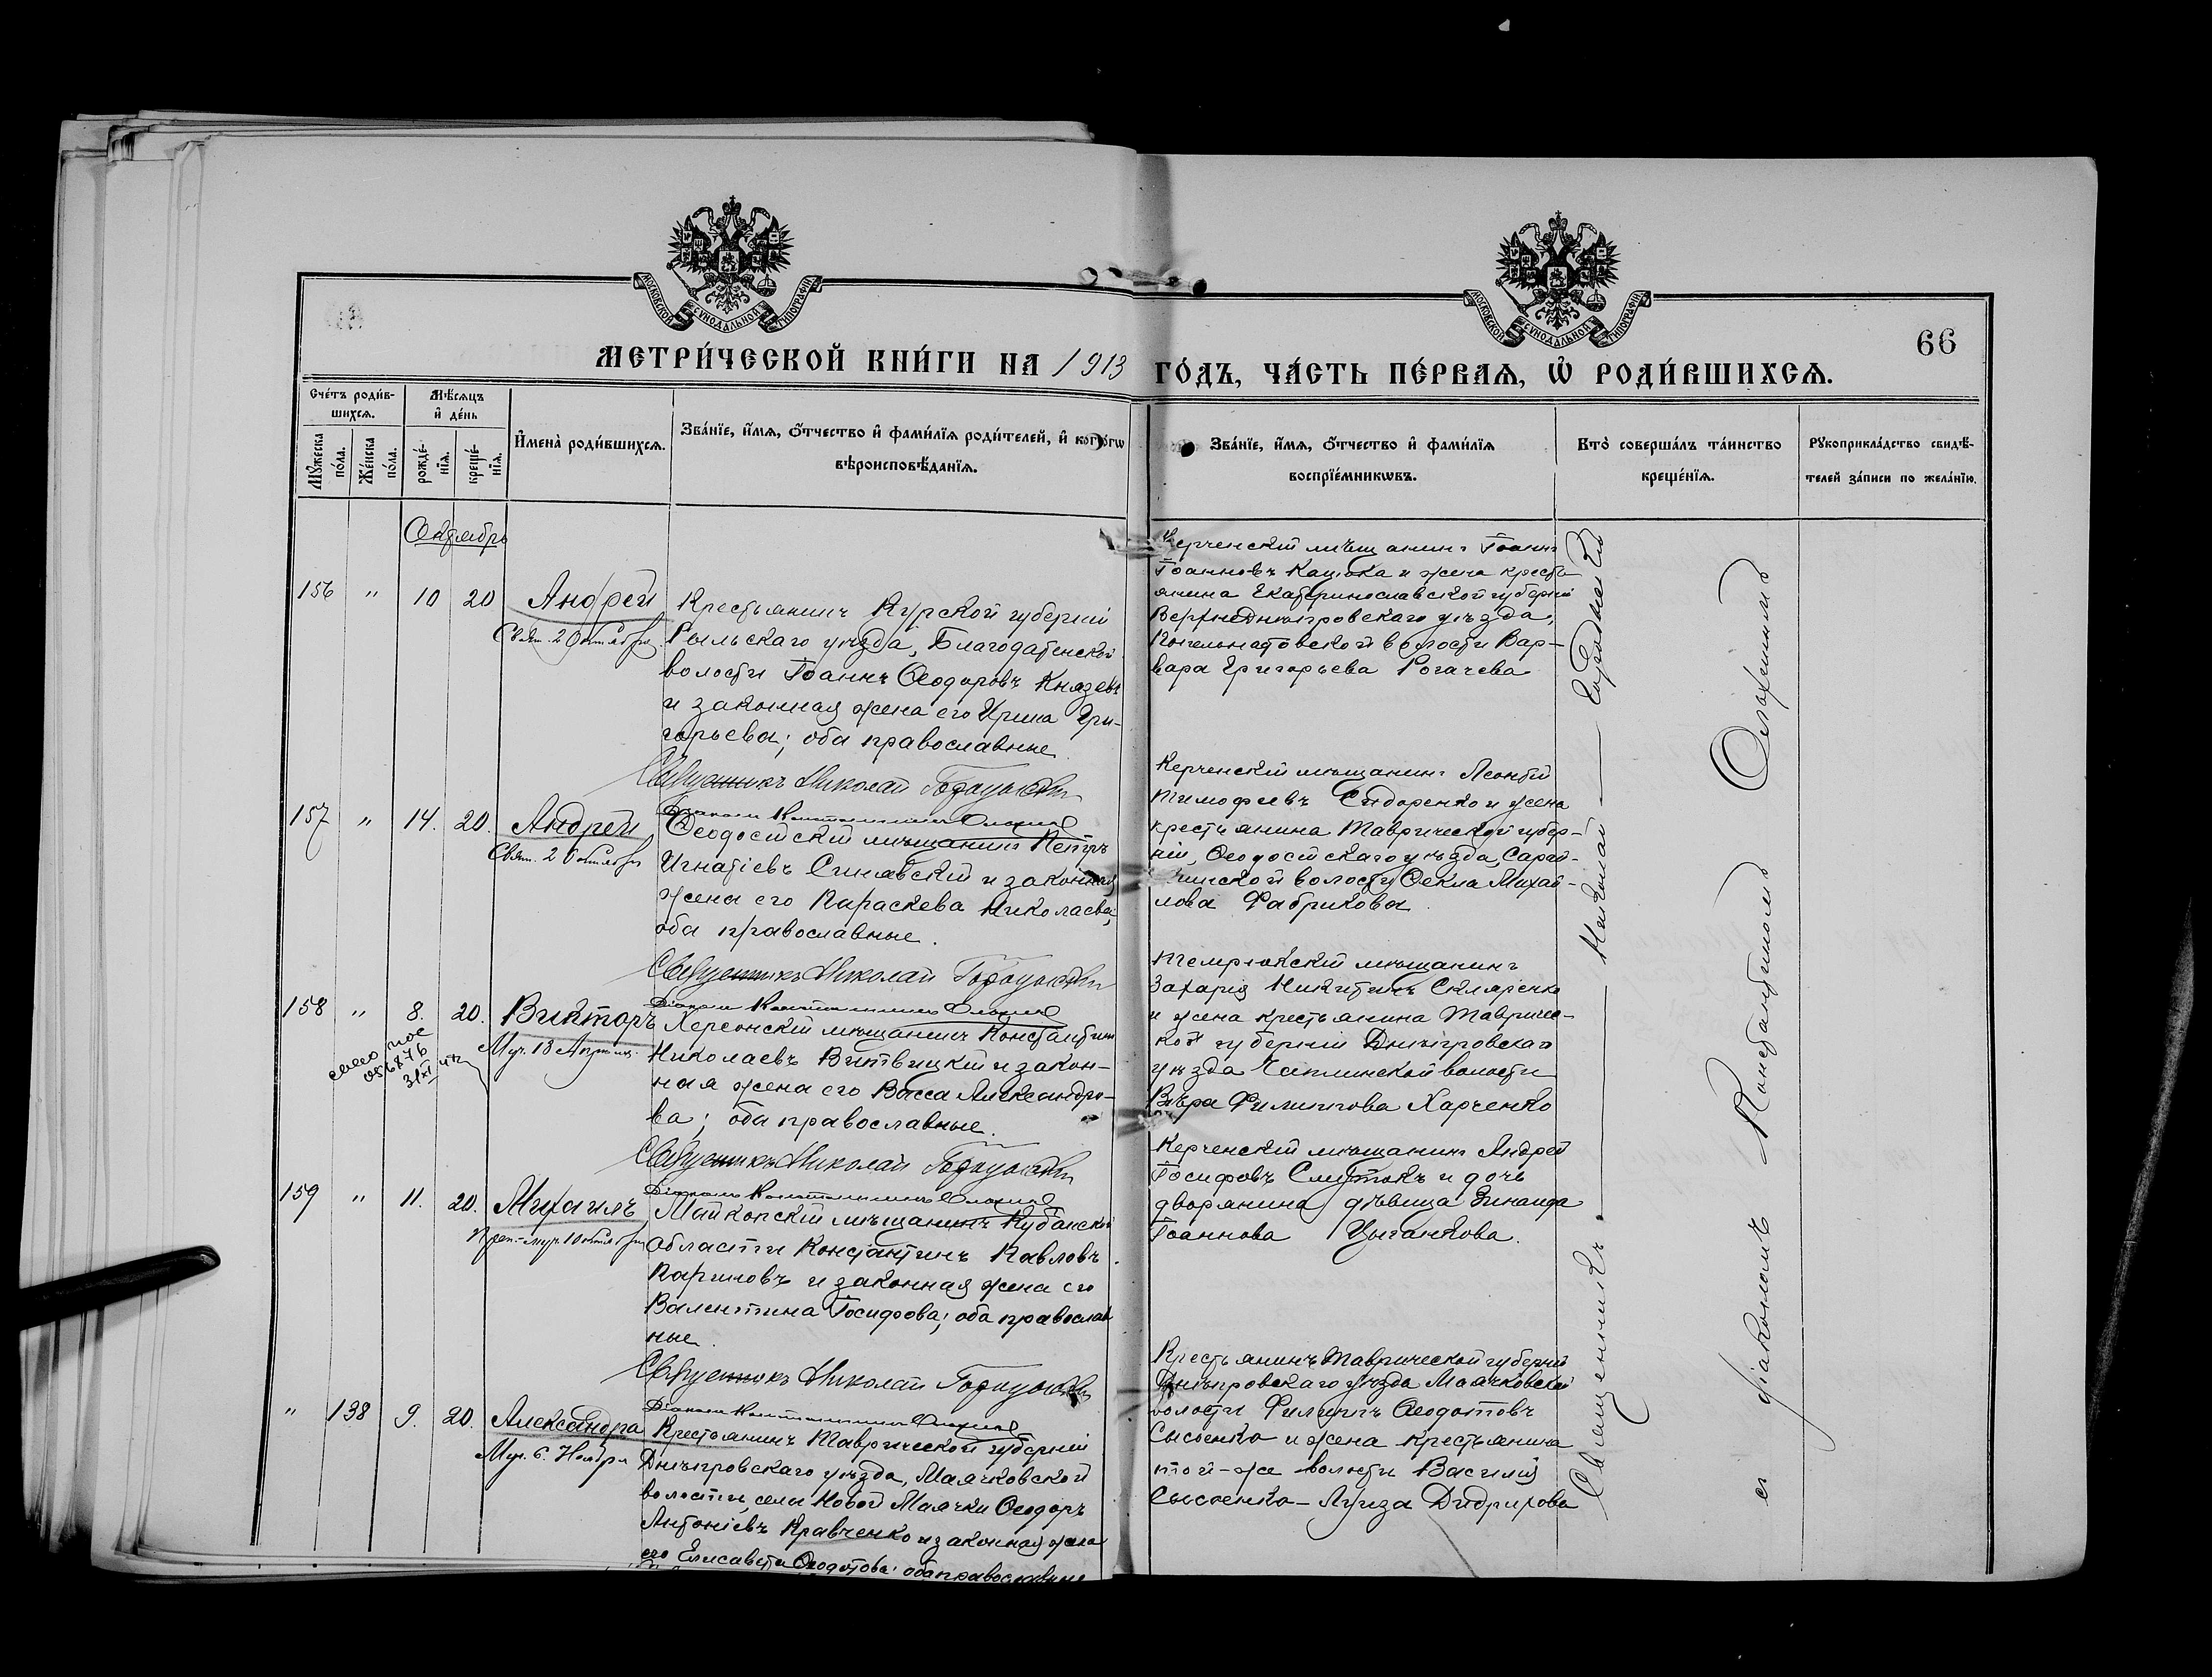 МОСКОВСКОЙ СѴНОДАЛЬНОЙ ТИПОГРАФІИ
МОСКОВСКОЙ СѴНОДАЛЬНОЙ ТИПОГРАФІИ
66
МЕТРИ́ЧЕСКОЙ КНИ́ГИ НА 1913 ГО́ДЪ, ЧА́СТЬ ПЕ́РВАѦ, Ѡ҆ РОДИ́ВШИХСѦ.
Сче́тъ роди́в-
шихсѧ.
Мꙋ́жеска по́ла.
Же́нска по́ла.
Мѣ́сѧцъ
и҆ де́нь
рожде́-
нїѧ.
креще́-
нїѧ.
И҆мена̀ роди́вшихсѧ.
Зва́нїе, и҆́мѧ, ѻ҆́тчество и҆ фами́лїѧ роди́телей, и҆ како́гѡ
вѣроисповѣ́данїѧ.
Зва́нїе, и҆́мѧ, ѻ҆́тчество и҆ фами́лїѧ
воспрїе́мникѡвъ.
Кто̀ соверша́лъ та́инство
креще́нїѧ.
Рꙋкоприкла́дство свидѣ́-
телей за́писи по жела́нїю.
Сентябрь
156 " 10 20 Андрей
Свят. 2 Октября.
Крестьянинъ Курской губерніи
Рыльскаго уѣзда, Благодатенской
волости Іоаннъ Ѳеодоровъ Князевъ
и законная жена его Ирина Гри-
горьева; оба православные
Керченскій мѣщанинъ Іоаннъ
Іоанновъ Кацюка и жена кресть
янина Екатеринославской губерніи
Верхнеднѣпровскаго уѣзда,
волости Вар-
вара Григорьева Рогачева
Священникъ Николай
Діаконъ Константинъ
157 " 14. 20. Андрей
Свят. 2 Октября
Ѳеодосійскій мѣщанинъ Петръ
Игнатіевъ Синявскій и законная
жена его Параскева Николаева,
оба православные.
Керченскій мѣщанинъ Леонтій
Тимофеевъ Сидоренко и жена
крестьянина Таврической губер-
ніи, Ѳеодосійскаго уѣзда,
волости Ѳекла Михай-
лова Фабрикова.
Священникъ Николай
Діаконъ Константинъ
158 " 8. 20. Викторъ
Муч. 18 Апрѣля.
Херсонскій мѣщанинъ Константинъ
Николаевъ Витвицкій и закон-
ная жена его Васса Александро-
ва; оба православные.
Темрюкскій мѣщанинъ
Захарія Никитинъ Скляренко
и жена крестьянина Тавриче-
кой губерніи Днѣпровскаго
уѣзда Чаплинской волости
Вѣра Филиппова Харченко
Священникъ Николай
Діаконъ Константинъ
159 " 11. 20. Михаилъ
Майкопскій мѣщанинъ Кубанской
области Константинъ Павловъ
Париновъ и законная жена его
Валентина Іосифова; оба православ
ные.
Керченскій мѣщанинъ Андрей
Іосифовъ и дочь
дворянина дѣвица Зинаида
Іоаннова Цыганкова.
Священникъ Николай
Діаконъ Константинъ
" 138 9. 20. Александра
Муч. 6. Ноября
Крестьянинъ Таврической губерніи
Днѣпровскаго уѣзда, Маячковской
волости, села Новой Маячки Ѳеодоръ
Антоніевъ Кравченко и законная жена
его Елисавета Ѳеодотова; оба православные
Крестьянинъ Таврической губерніи
Днѣпровскаго уѣзда Маячковской
волости Филиппъ Ѳеодотовъ
Сысоенко и жена крестьянина
той-же волости Василія
Сысоенко – Луиза
Священникъ Николай
съ діакономъ Константиномъ